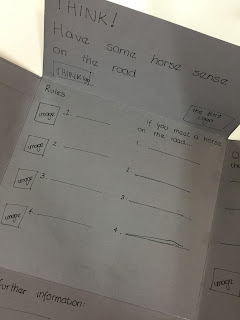 THINK!
Have some horse sense
on the road
THINK!
Rules
If you meet a horse
on the road...
image 1.
1.
image 2.
2.
image 3.
3.
image 4.
4.
image
image
further information: